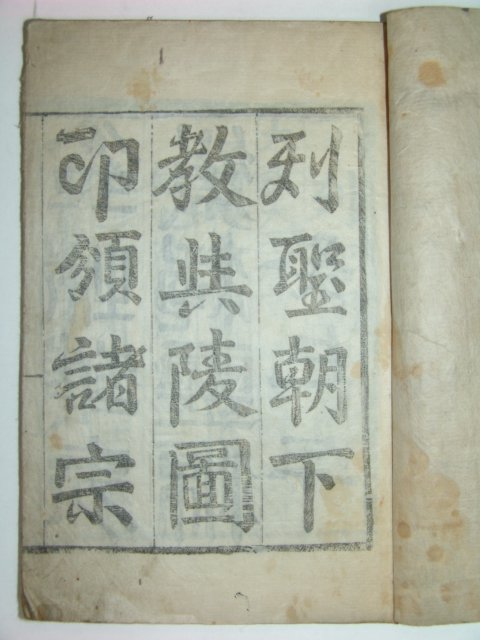 列聖朝下
教與陵圖
印須諸宗